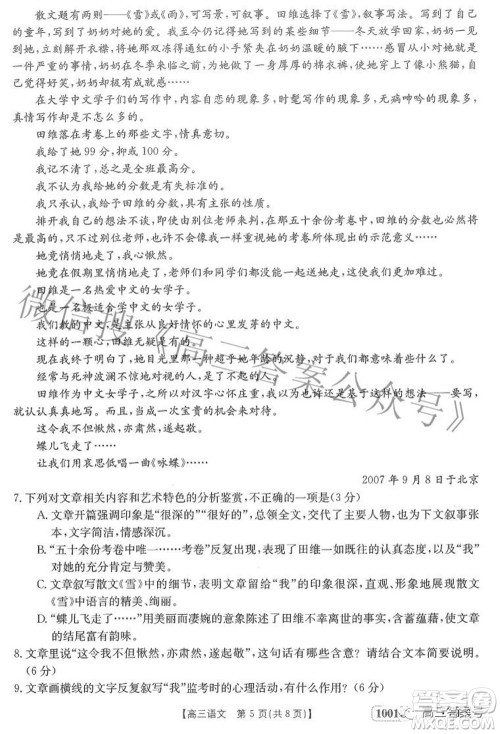 散文题有两则——《雪》或《雨》,可写景,可叙事。田维选《雪》,叙事写法。写到了自己
的童年,写到了奶奶对她的爱。我至今仍记得这样的细节——冬天放学回家,慈祥的奶奶
见她一眼,立刻解开衣襟,将她一双冻得通红的小手紧紧夹在奶奶温暖的腋下……还写到一
件严重的事情:奶奶在冬季来临之前,为她做了一身厚厚的棉衣裤,使她觉得自己像小熊猫,自
己觉得好笑,奶奶却很有成就感……
在大学中文学子们的写作中,内容自恋的现象多,时髦写作的现象多,无病呻吟的现象更
多。
田维落在考卷上的那些文字,情真意切。
我给了她 99 分,抑或 100 分。
我记不清了。
我不认为我给她的分数是全班最高分。
我不认为我给田维的分数是有争议的。
排除我自己的想法不谈,我确信由别位老师来判,在那五十余份考卷中田维的分数也必然将
是最高的——如果别位老师也像我一样重视她的考卷所体现出的示范意义……
她竟悄悄地走了。
她竟在假期里悄悄地走了,老师们和同学们没一个来得及与她相见一面。
田维是一名怀揣中文的女学子。
也是一名特适合学中文的女学子。
我们教的中文,是主张从良好情怀的心里发芽的中文。
这样的一颗心,田维无疑是有的。
现在我终于明白了,她目光里那一种超乎她年龄的沉静,对于我们都意味着什么了。
经常与死神波澜不惊地对视的人,是了不起的人。
田维作为中文女学子,之所以对汉字心怀庄重,我以为也许还是基于这样的想法——要写,
就认认真真地写。而且,当成一次宝贵的机会来写。
这令我不但愀然,亦肃然,遂起敬。
蝶儿飞走了……
让我们用哀思低唱一曲《咏蝶》……
2007 年 9 月 8 日于北京
7. 下列对文章相关内容和艺术特色的分析鉴赏,不正确的一项是(3 分)
A. 文章开篇强调印象是“很深的”“很深的”,交代了写作的基本内容,也为下文叙事张
本,文字简洁,情感沉重。
B. “五十余份考卷中唯一……考卷”反复出现,表现了田维一如既往的认真态度,以及“我”
对她的充分肯定与赞美。
C. 文章叙写散文《雪》中的细节,表明文章留给“我”的印象深刻,能直观地展现出散文
《雪》中语言的精美、绚丽。
D. “蝶儿飞走了”用美丽而凄婉的意象陈述了田维不幸去世的事实,含蓄蕴藉,使文章余
味无穷。
8. 文章里说“这令我不但愀然,亦肃然,遂起敬”,为什么?请结合文章内容进行概括。
(6 分)
9. 文章画横线的文字反复叙写“我”监考时的心理活动,有什么作用?(6 分)
【高三语文 第 5 页(共 8 页)】
微信搜《高三答案公众号》